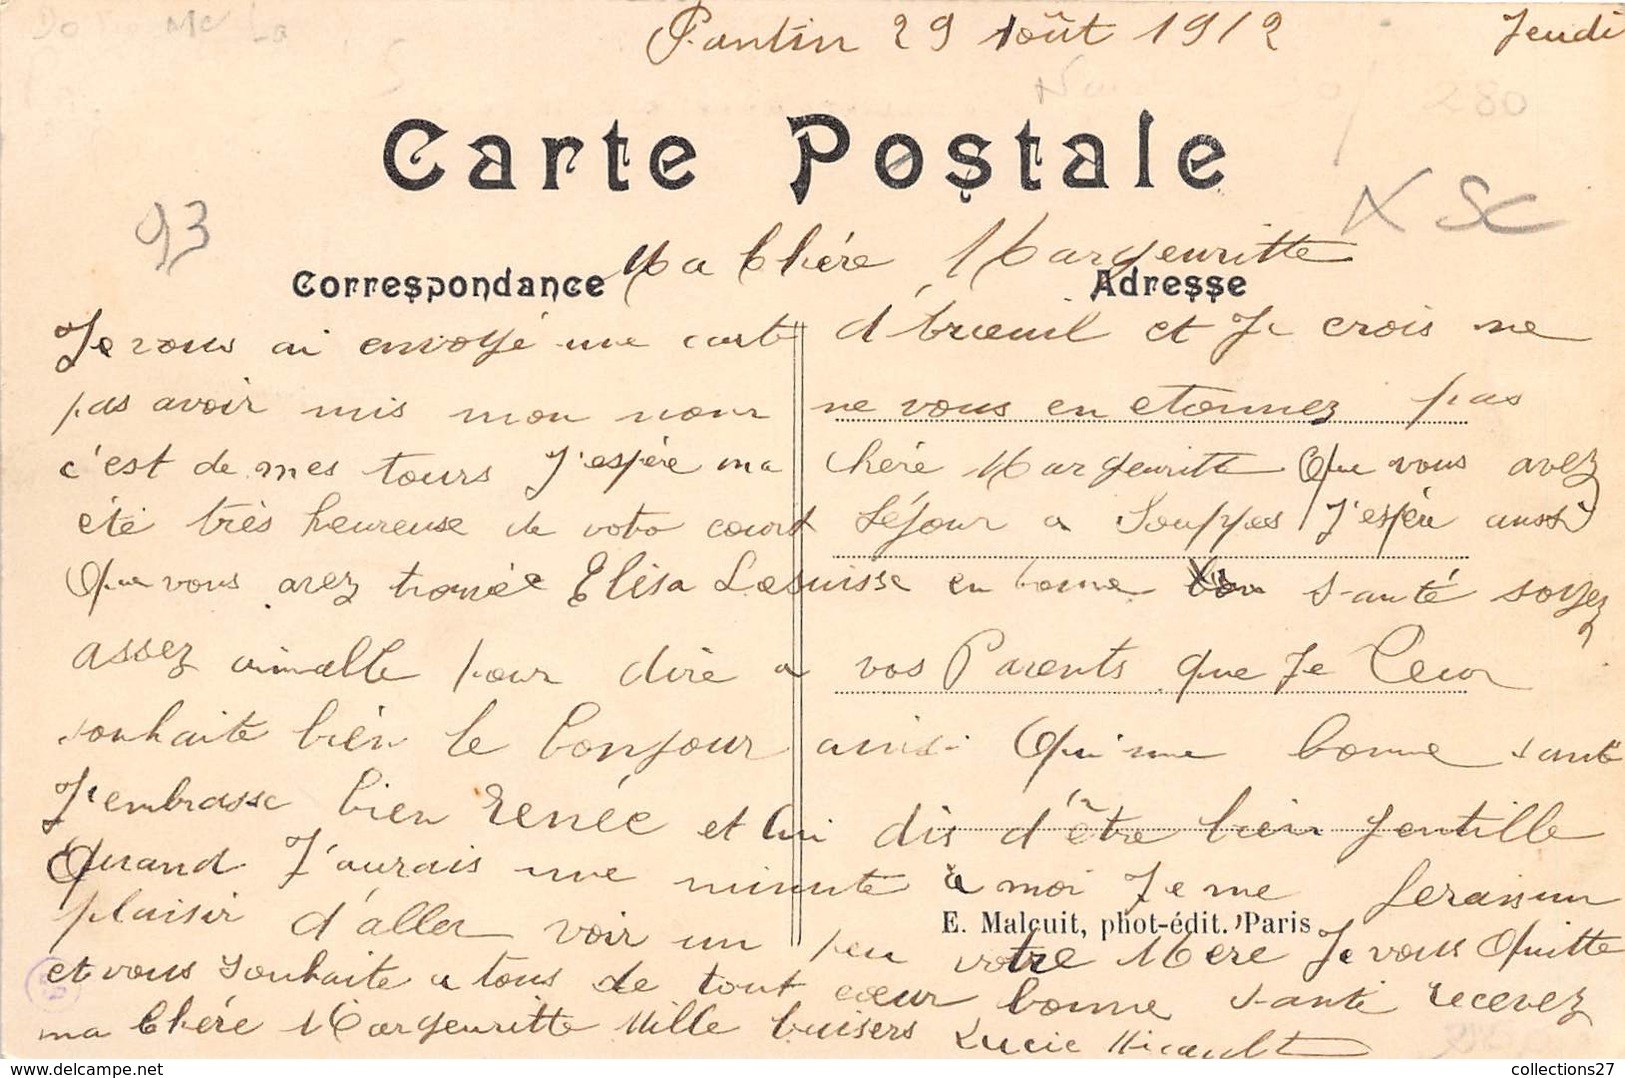 Pantin 29 Août 1912 Jeudi
280
Carte Postale
93
X SC
Ma Chére Margeuritte
Correspondance Adresse
Je vous ai envoyé une carte d'breuil et Je crois ne
pas avoir mis mon nom ne vous en etonnez pas
c'est de mes tours J'espére ma chére Margeuritte Que vous avez
été très heureuse de votre court Séjour a Souppes J'espére aussi
Que vous avez trouvée Elisa Lesuisse en bonne santé soyez
assez aimable pour dire a vos Parents que Je Leur
souhaite bien le bonjour ainsi Qu'une bonne santé
J'embrasse bien Renée et lui dis d'être bien gentille
Quand J'aurais une minute a moi Je me ferais un
plaisir d'aller voir un peu votre Mere Je vous Quitte
E. Malcuit, phot-édit. Paris
et vous souhaite a tous de tout cœur bonne santé recevez
ma Chére Margeuritte Mille baisers Lucie
collections27